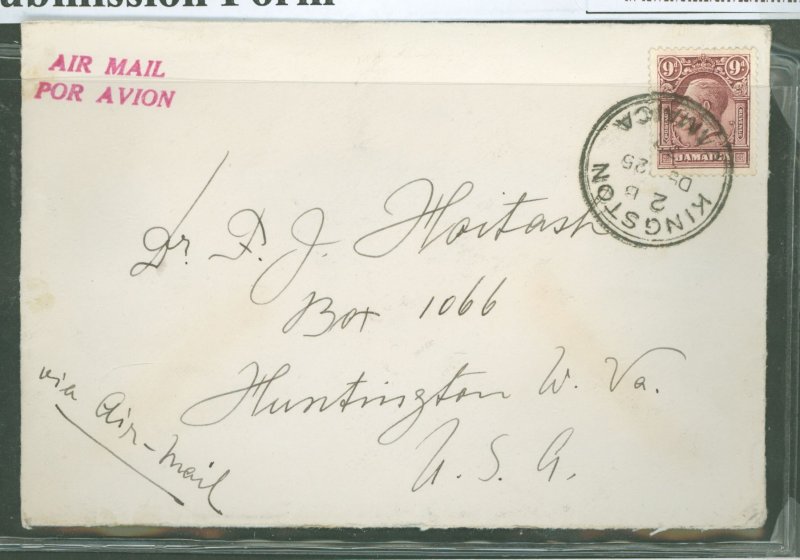 ubmission Form
AIR MAIL
POR AVION
9d 9d
JAMAICA
KINGSTON
JAMAICA
2 B
DE
25
Dr. F. J. Hoitash
Box 1066
Huntington W. Va.
U. S. A.
via Air-Mail